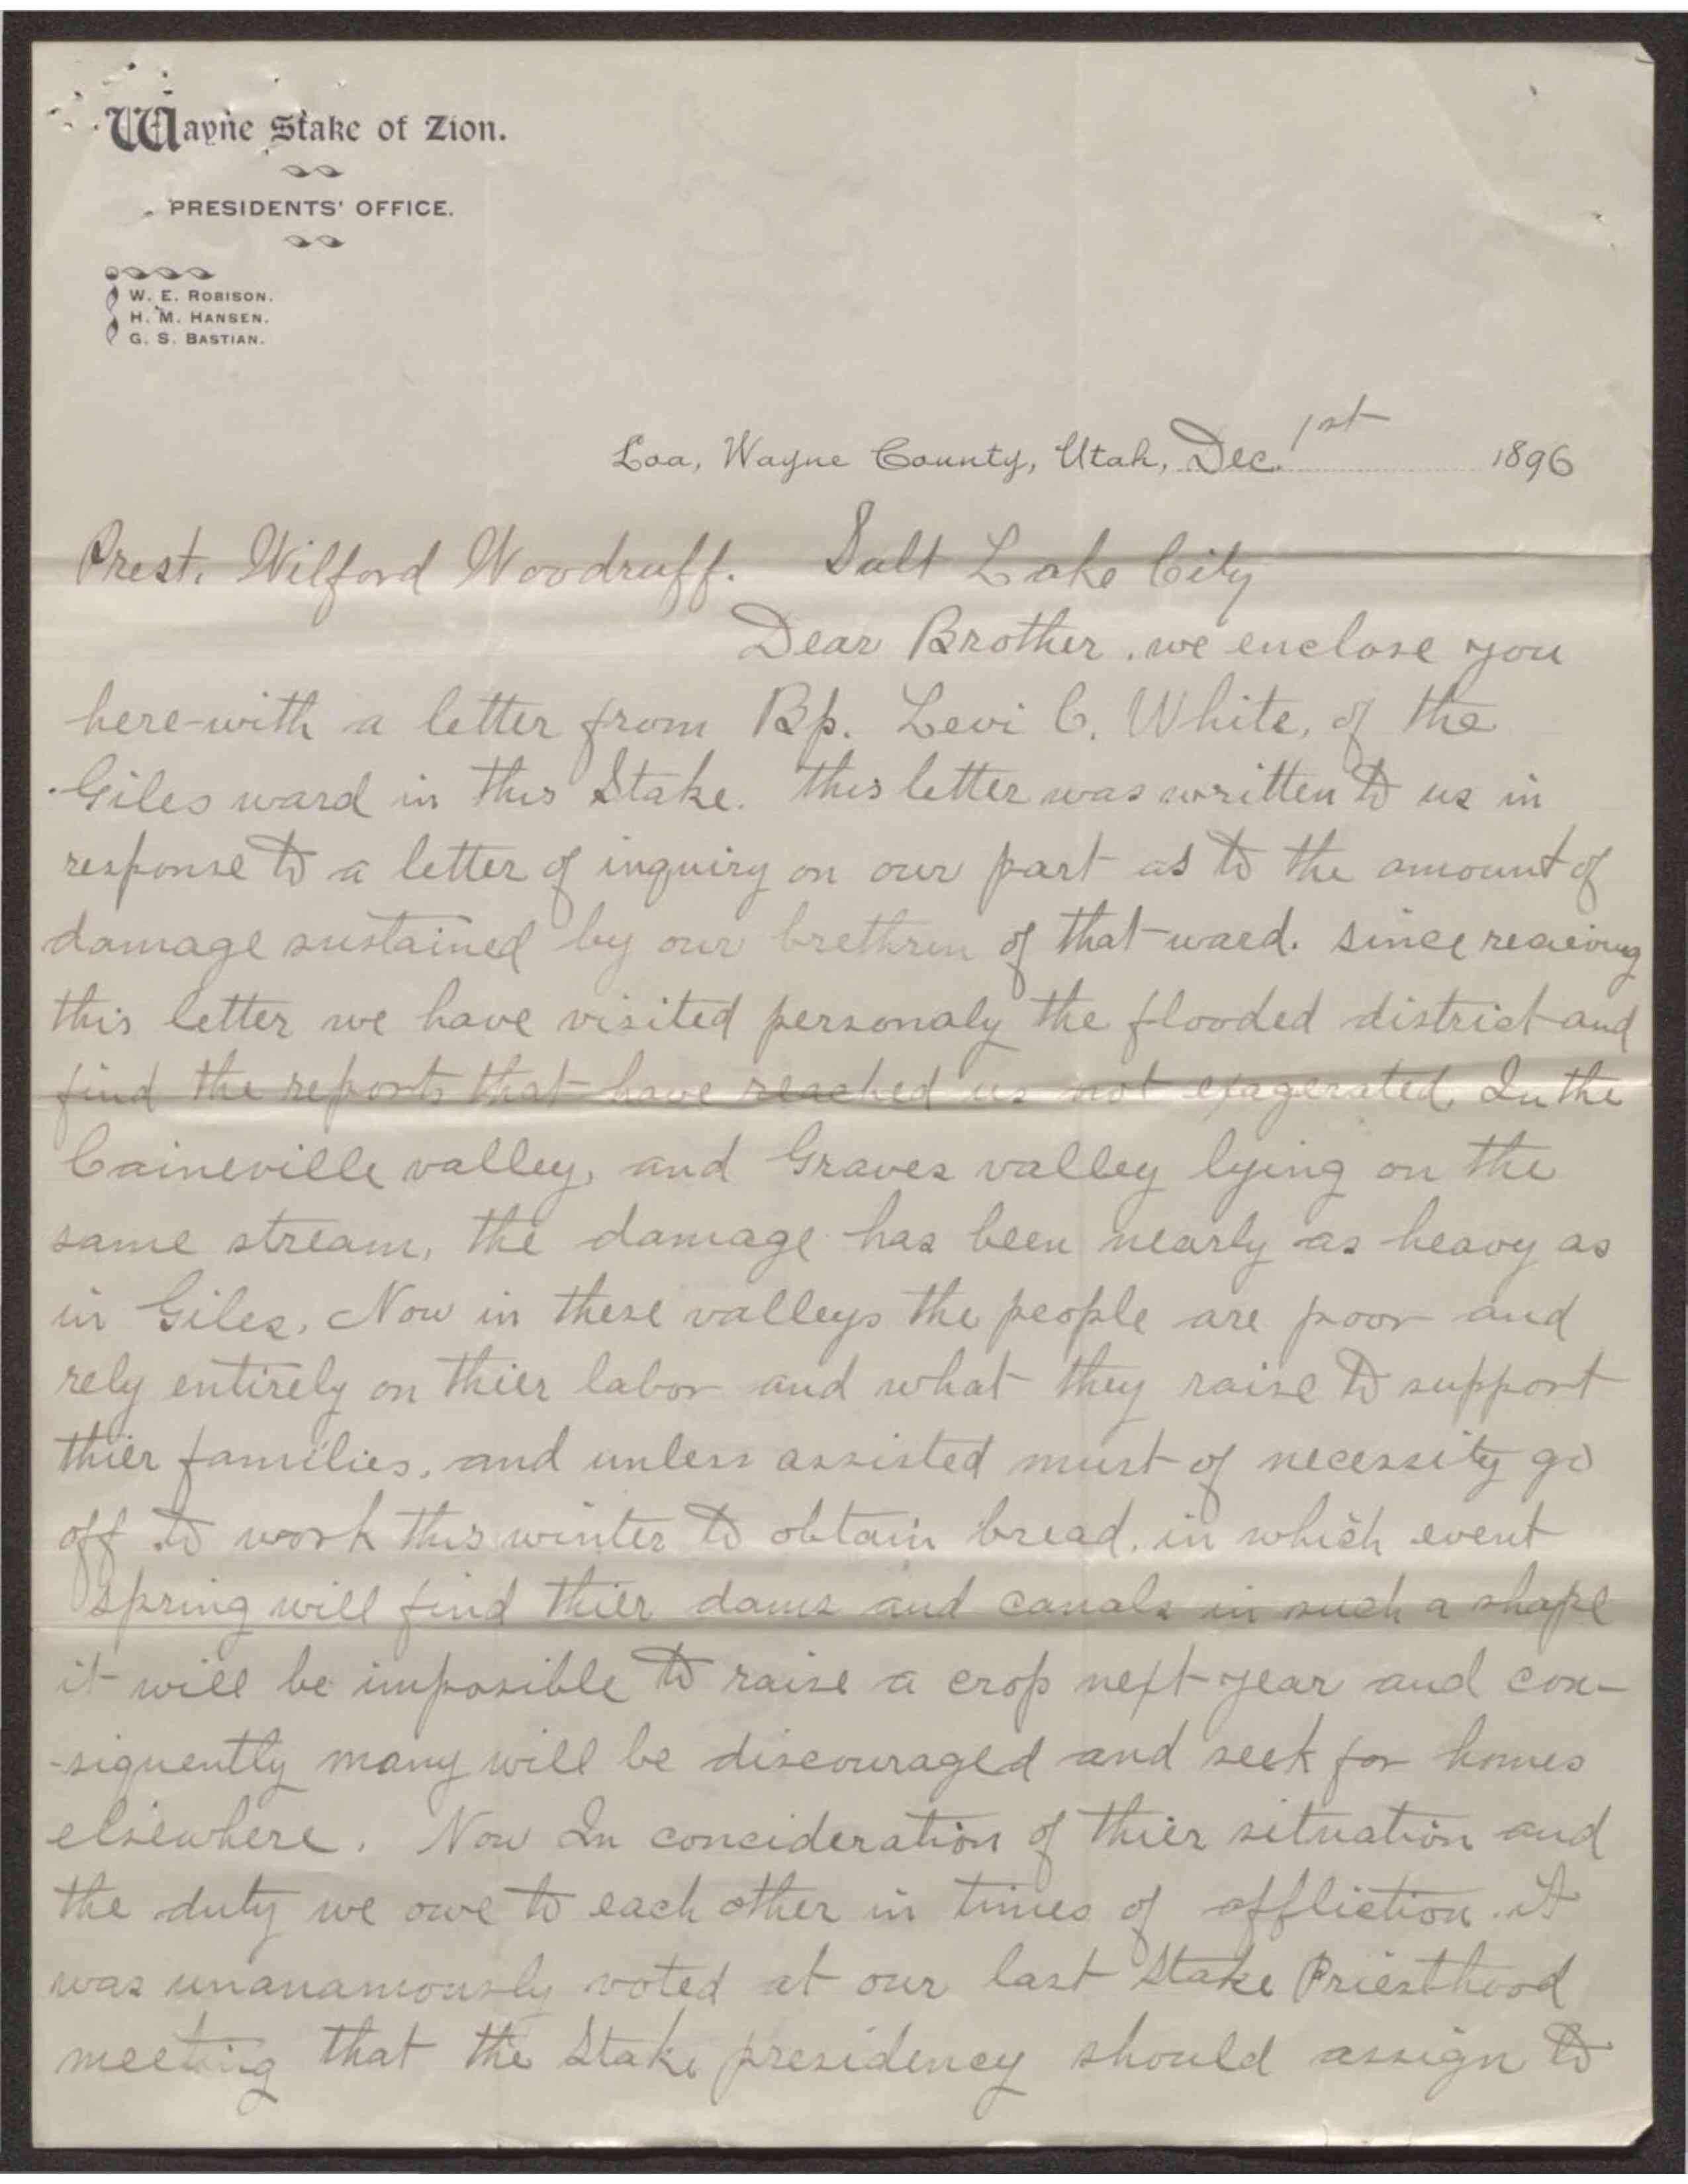 Wayne Stake of Zion.
PRESIDENTS' OFFICE.
W. E. ROBISON.
H. M. HANSEN.
G. S. BASTIAN.
Loa, Wayne County, Utah, Dec. 1st 1896
Prest. Wilford Woodruff. Salt Lake City
Dear Brother, we enclose you
here-with a letter from Bp. Levi C. White, of the
Giles ward in this Stake. this letter was written to us in
response to a letter of inquiry on our part as to the amount of
damage sustained by our brethren of that ward. since receiving
this letter we have visited personaly the flooded district and
find the reports that have reached us not exagerated. In the
Caineville valley, and Graves valley lying on the
same stream, the damage has been nearly as heavy as
in Giles. Now in these valleys the people are poor and
rely entirely on thier labor and what they raise to support
thier families, and unless assisted must of necessity go
off to work this winter to obtain bread. in which event
spring will find thier dams and canals in such a shape
it will be imposible to raise a crop next year and con-
-siquently many will be discouraged and seek for homes
elsewhere. Now In concideration of thier situation and
the duty we owe to each other in times of affliction. it
was unanamously voted at our last Stake Priesthood
meeting that the Stake presidency should assign to